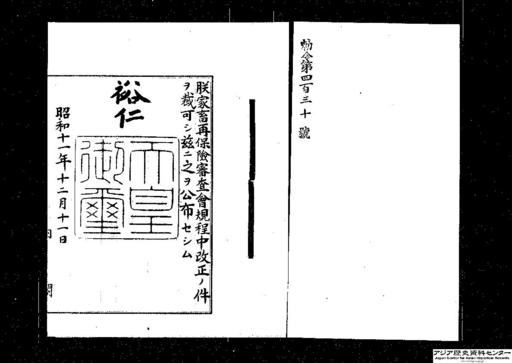 勅令第四百三十號
朕家畜再保險審査會規程中改正ノ件
ヲ裁可シ茲ニ之ヲ公布セシム
裕仁
天皇御璽
昭和十一年十二月十一日
アジア歴史資料センター
Japan Center for Asian Historical Records